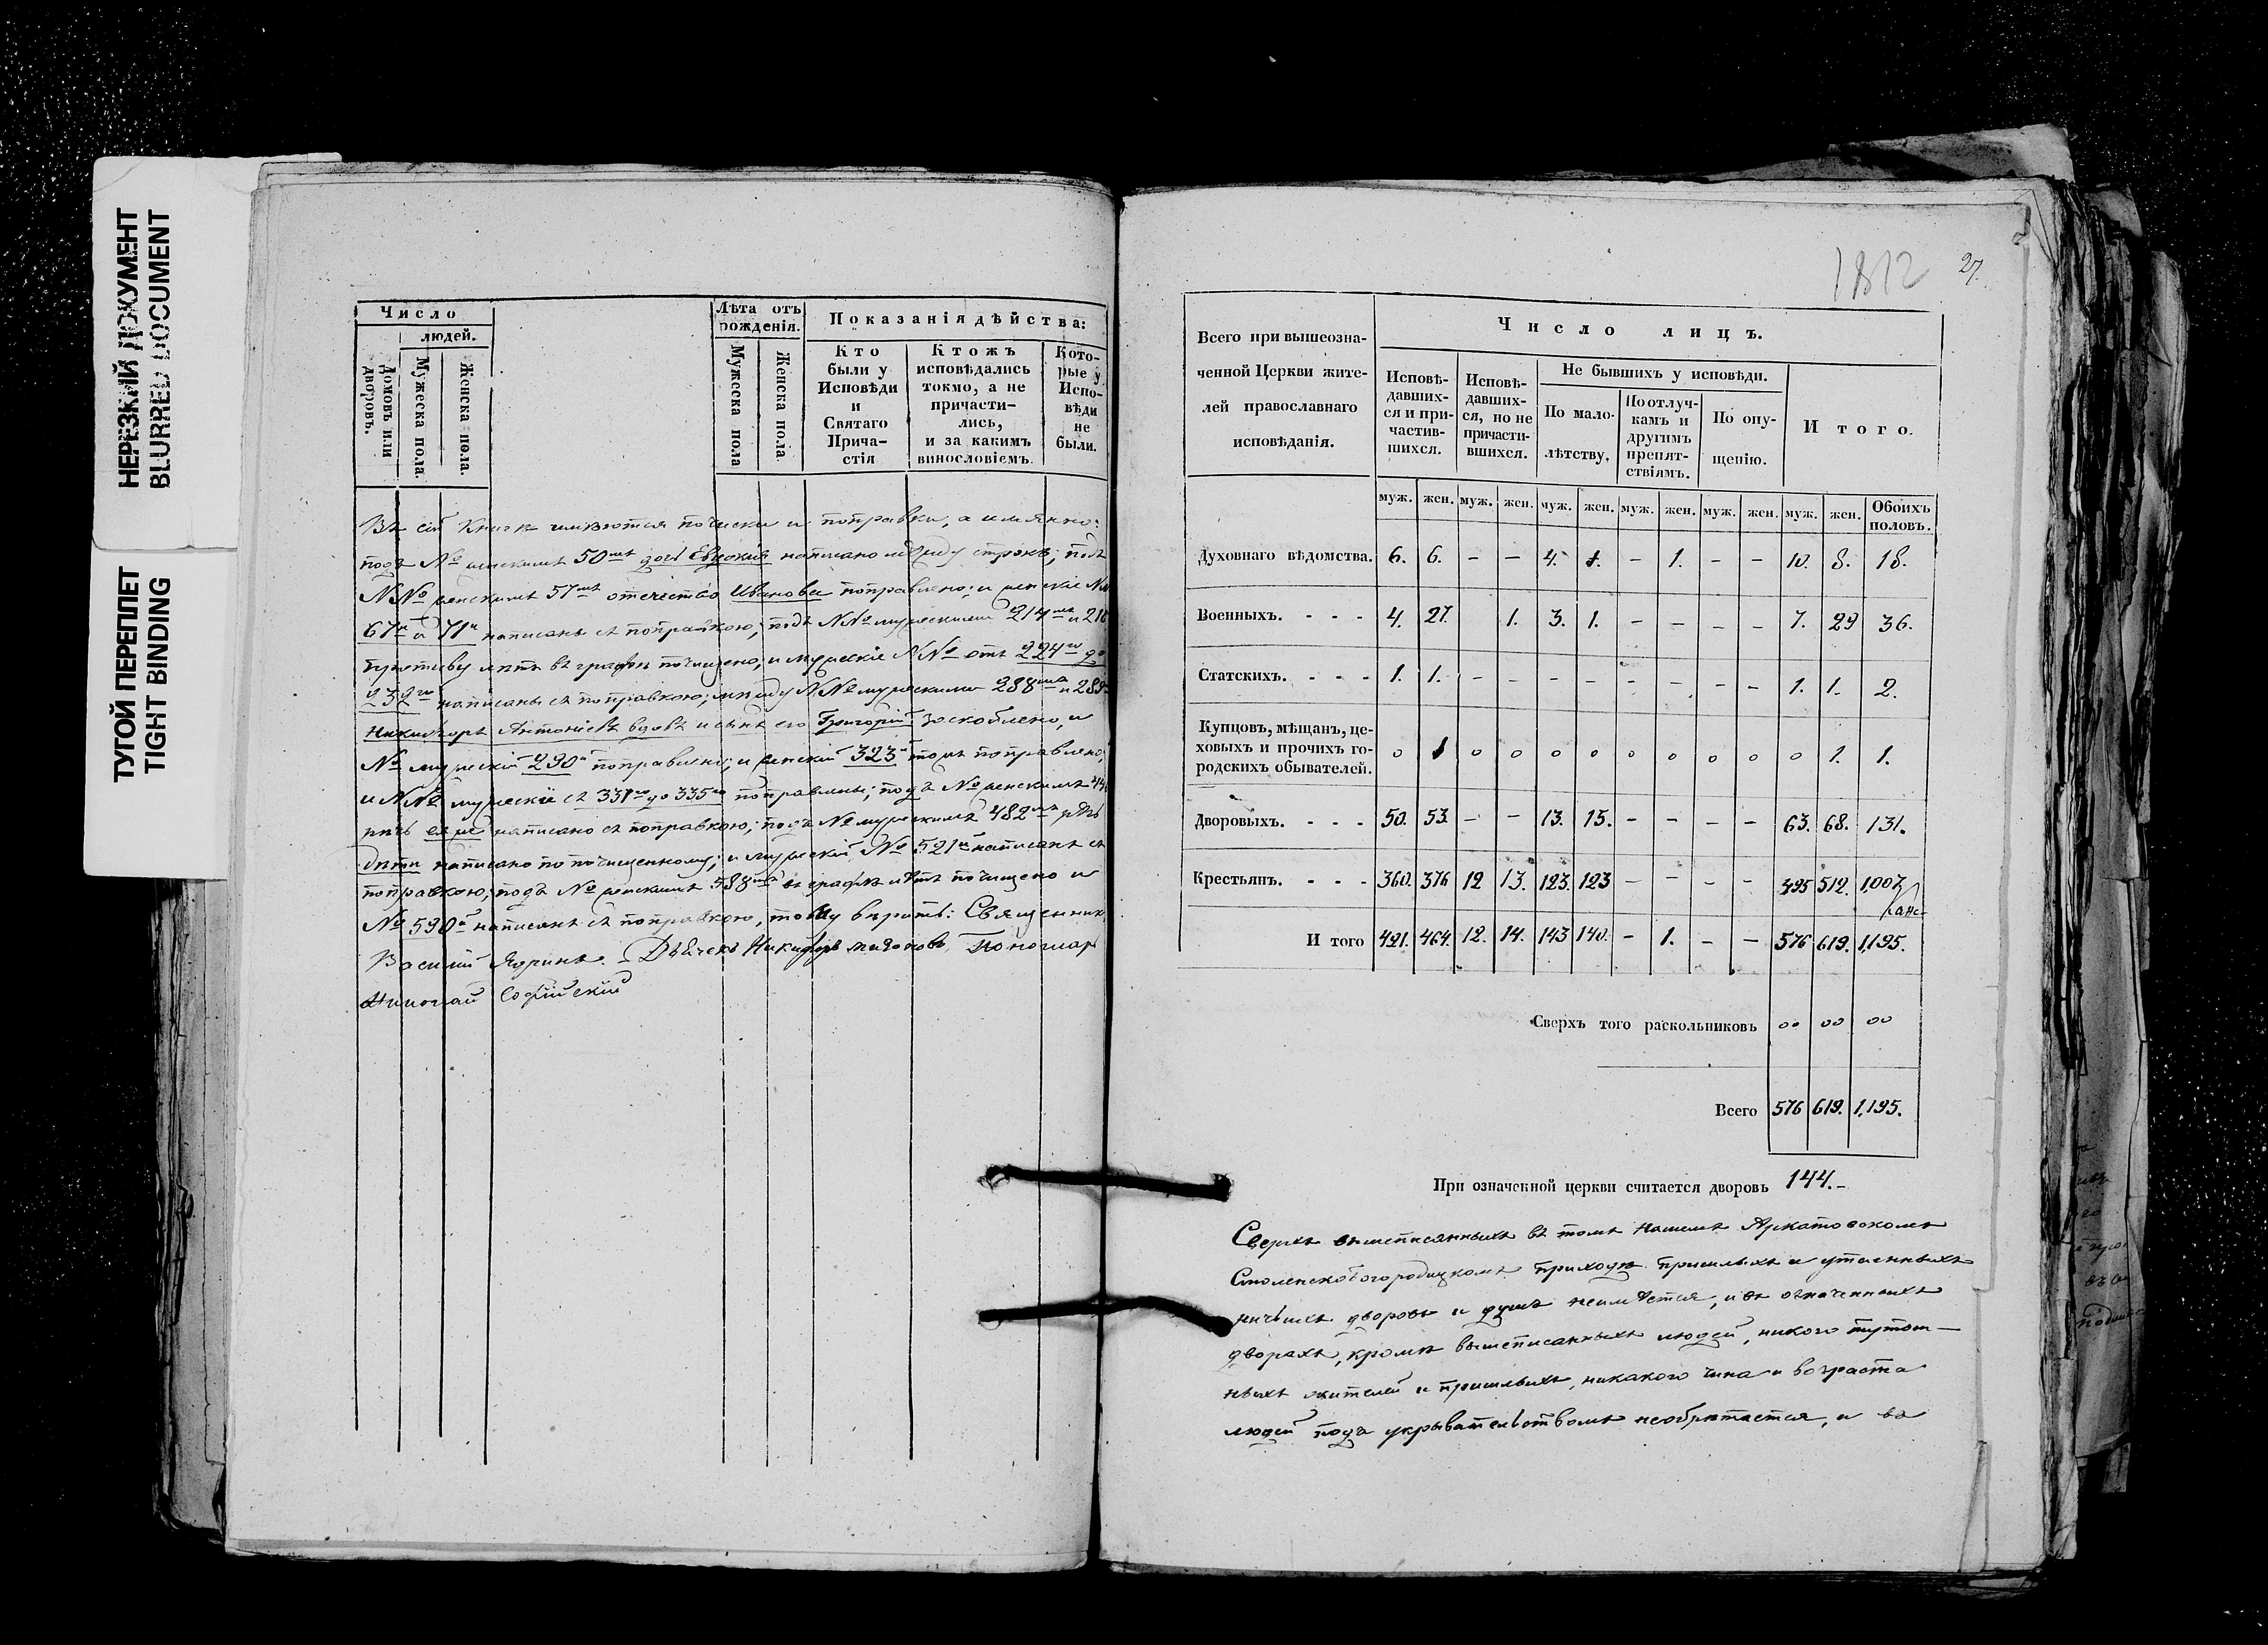 НЕРЕЗКИЙ ДОКУМЕНТ
BLURRED DOCUMENT
ТУГОЙ ПЕРЕПЛЕТ
TIGHT BINDING
Число
людей.
Домовъ или дворовъ.
Мужеска пола.
Женска пола.
Лѣта отъ рожденія.
Мужеска пола
Женска пола.
Показанія дѣйства:
Кто были у Исповѣди и Святаго Прича-стія
Ктожъ исповѣдались токмо, а не причасти-лись, и за какимъ винословіемъ.
Кото-рые у Испо-вѣди не были.
Въ сей Книгѣ имѣются почистки и поправки, а имянно:
подъ № женскимъ 50мъ дочь Евдокія написано между строкъ; подъ
№№ женскимъ 57мъ отечество Иванова поправлено; и женскіе №№
67й и 71й написаны съ поправкою; подъ №№ мужескими 214мъ и 216
противу лѣтъ въ графѣ почищено, и мужескіе №№ отъ 224го до
232го написаны съ поправкою; между №№ мужескими 288мъ и 289
Никифоръ Антоніевъ вдовъ и сынъ его Григорій заскоблено, и
№ мужескій 290й поправленъ; и женскій 323й тожъ поправлено;
и №№ мужескіе съ 331го до 335го поправлены; подъ № женскимъ
рѣчь написано съ поправкою; подъ № мужескимъ 482мъ рѣчь
дѣти написано по почищенному; и мужескій № 521й написанъ съ
поправкою; подъ № женскимъ 588мъ въ графѣ лѣтъ почищено и
№ 590й написанъ съ поправкою, тому вѣрить: Священникъ
Василій Яринъ. Дьячекъ Никифоръ Пономарь
Николай Софійскій
1812
27.
Всего при вышеозна-
ченной Церкви жите-
лей православнаго
исповѣданія.
Число лицъ.
Исповѣ-давших-ся и при-частив-шихся.
Исповѣ-давших-ся, но не причасти-вшихся.
Не бывшихъ у исповѣди.
По мало-лѣтству.
По отлуч-камъ и другимъ препят-ствіямъ.
По опу-щенію.
И того.
муж. жен. муж. жен. муж. жен. муж. жен. муж. жен. муж. жен. Обоихъ половъ.
Духовнаго вѣдомства. 6. 6. – – 4. 1. – 1. – – 10. 8. 18.
Военныхъ. - - - 4. 27. 1. 3. 1. – – – – 7. 29 36.
Статскихъ. - - - 1. 1. – – – – – – – – 1. 1. 2.
Купцовъ, мѣщанъ, це-
ховыхъ и прочихъ го-
родскихъ обывателей. 0 1 0 0 0 0 0 0 0 0 0 1. 1.
Дворовыхъ. - - - 50. 53. – – 13. 15. – – – – 63. 68. 131.
Крестьянъ. - - - 360. 376 12 13. 123. 123 – – – – 495 512. 1,007
И того 421. 464. 12. 14. 143 140. – 1. – – 576 619. 1,195.
Сверхъ того раскольниковъ 00 00 00
Всего 576 619. 1,195.
При означенной церкви считается дворовъ 144.–
Сверхъ вышеписанныхъ въ томъ нашемъ Аркатовскомъ
Смоленскобогородицкомъ приходѣ пришлыхъ и утаенныхъ
ничьихъ дворовъ и душъ неимѣется, и въ означенныхъ
дворахъ, кромѣ вышеписанныхъ людей, никого тутош–
ныхъ жителей и пришлыхъ, никакого чина и возраста
людей подъ укрывательствомъ необрѣтается, и во